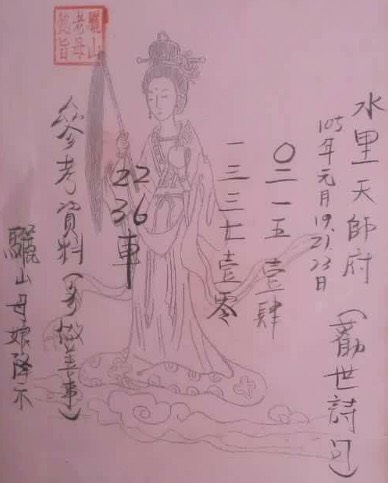 水里天師府(勸世詩句)
105年元月19.21.23日
〇二一五壹肆
一三三七壹零
22
36車
參考資料(多做善事)
驪山母娘降示
驪山
老母
懿旨